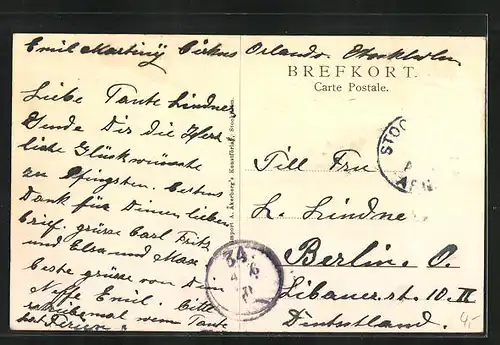 Emil Martiny Cirkus Orlando. Stockholm
BREFKORT.
Carte Postale.
Liebe Tante Lindner
Sende Dir die Herz
liche Glückwünsche
zu Pfingsten. Bestens
Dank für Deinen lieben
Brief. grüsse Carl Fritz
und Elsa und Maxe
beste grüsse von Dein
Neffe Emil. Bitte
mein Tante
hat Ferien.
Import A. Åkerberg's Konstförlag, Stockholm.
STOC
34.
Till Fru
L. Lindne
Berlin. O.
Libauer.st. 10. II
Deutsstland.
4,-